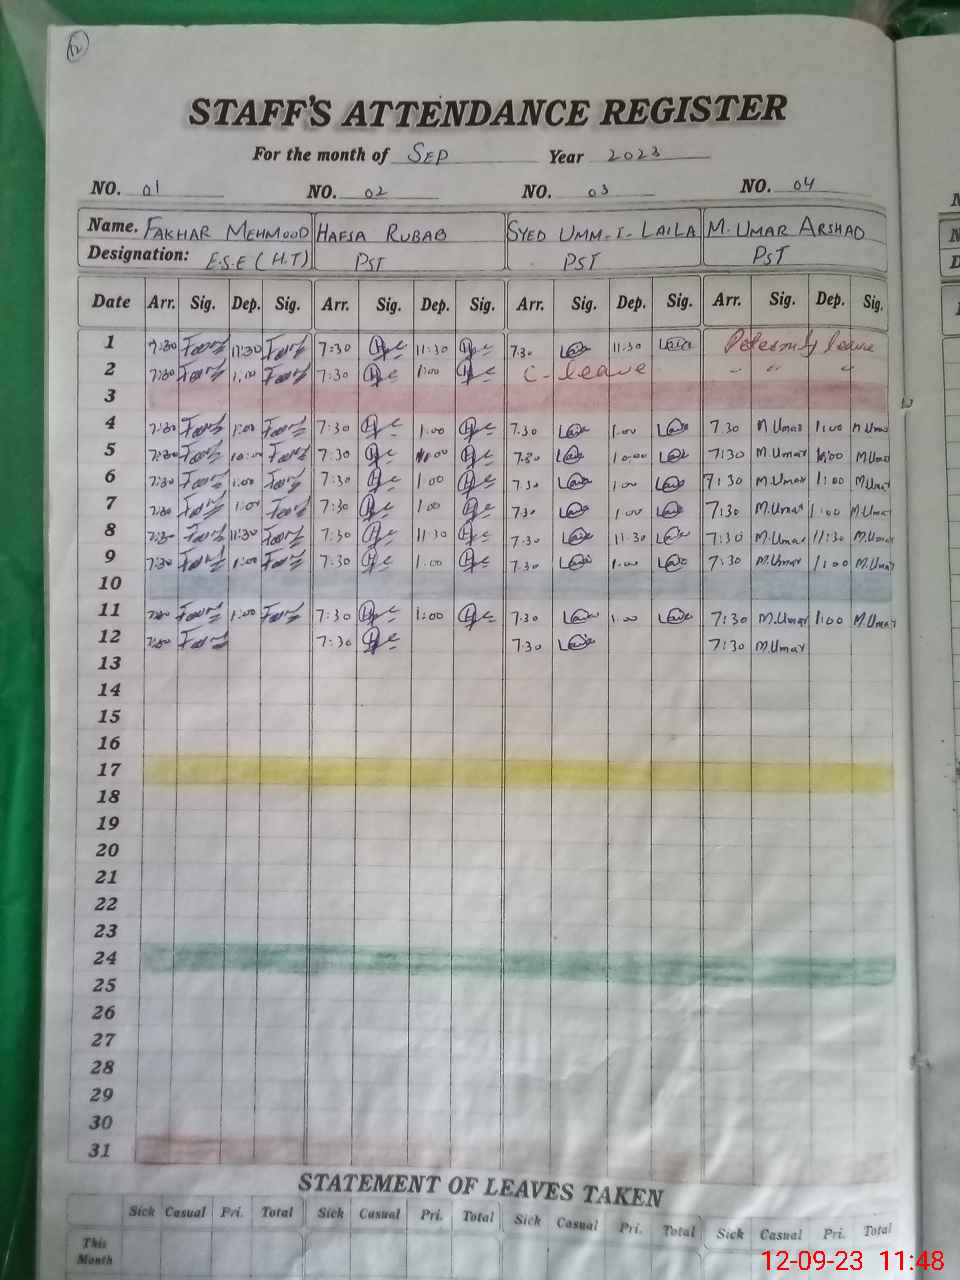 12
STAFF'S ATTENDANCE REGISTER
For the month of SEP Year 2023
NO. 01 NO. 02 NO. 03 NO. 04
Name. FAKHAR MEHMOOD HAFSA RUBAB SYED UMM-I-LAILA M. UMAR ARSHAD
Designation: E.S.E (H.T) PST PST PST
Date Arr. Sig. Dep. Sig. Arr. Sig. Dep. Sig. Arr. Sig. Dep. Sig. Arr. Sig. Dep. Sig.
1 7:30 11:30 7:30 11:30 7.30 11.30 leave
2 7:30 1:00 7:30 1:00 C-leave " " "
3
4 7:30 1:00 7:30 1:00 7.30 1.00 7.30 M Umar 1:00 M Umar
5 7:30 10:00 7:30 7.30 10:00 7:30 M.Umar M Umar
6 7:30 1:00 7:30 1:00 7.30 1.00 7:30 M.Umar 1:00 M.Umar
7 7:30 1:00 7:30 1:00 7.30 1.00 7:30 M.Umar 1:00 M.Umar
8 7:30 11:30 7:30 11:30 7.30 11.30 7:30 M.Umar 11:30 M.Umar
9 7:30 1:00 7:30 1:00 7.30 1.00 7:30 M.Umar 1:00 M.Umar
10
11 7:30 1:00 7:30 1:00 7.30 1.00 7:30 M.Umar 1:00 M.Umar
12 7:30 7:30 7.30 7:30 M.Umar
13
14
15
16
17
18
19
20
21
22
23
24
25
26
27
28
29
30
31
STATEMENT OF LEAVES TAKEN
Sick Casual Pri. Total Sick Casual Pri. Total Sick Casual Pri. Total Sick Casual Pri. Total
This
Month
12-09-23 11:48